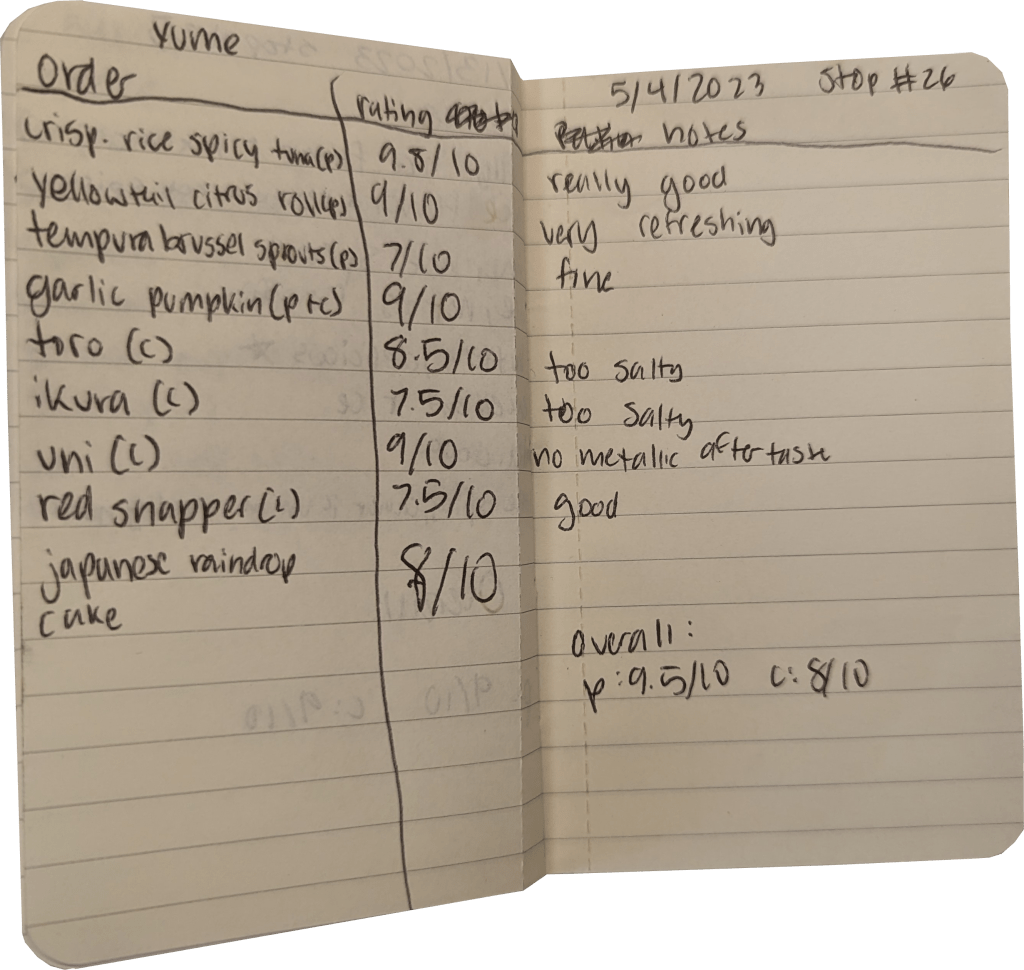 Yume
order
rating
crisp. rice spicy tuna(p) 9.8/10
yellowtail citrus roll(p) 9/10
tempura brussel sprouts(p) 7/10
garlic pumpkin(p+c) 9/10
toro (c) 8.5/10
ikura (c) 7.5/10
uni (c) 9/10
red snapper(c) 7.5/10
japanese raindrop 8/10
cake
5/4/2023 Stop #26
notes
really good
very refreshing
fine
too salty
too salty
no metallic aftertaste
good
overall:
p:9.5/10 c:8/10